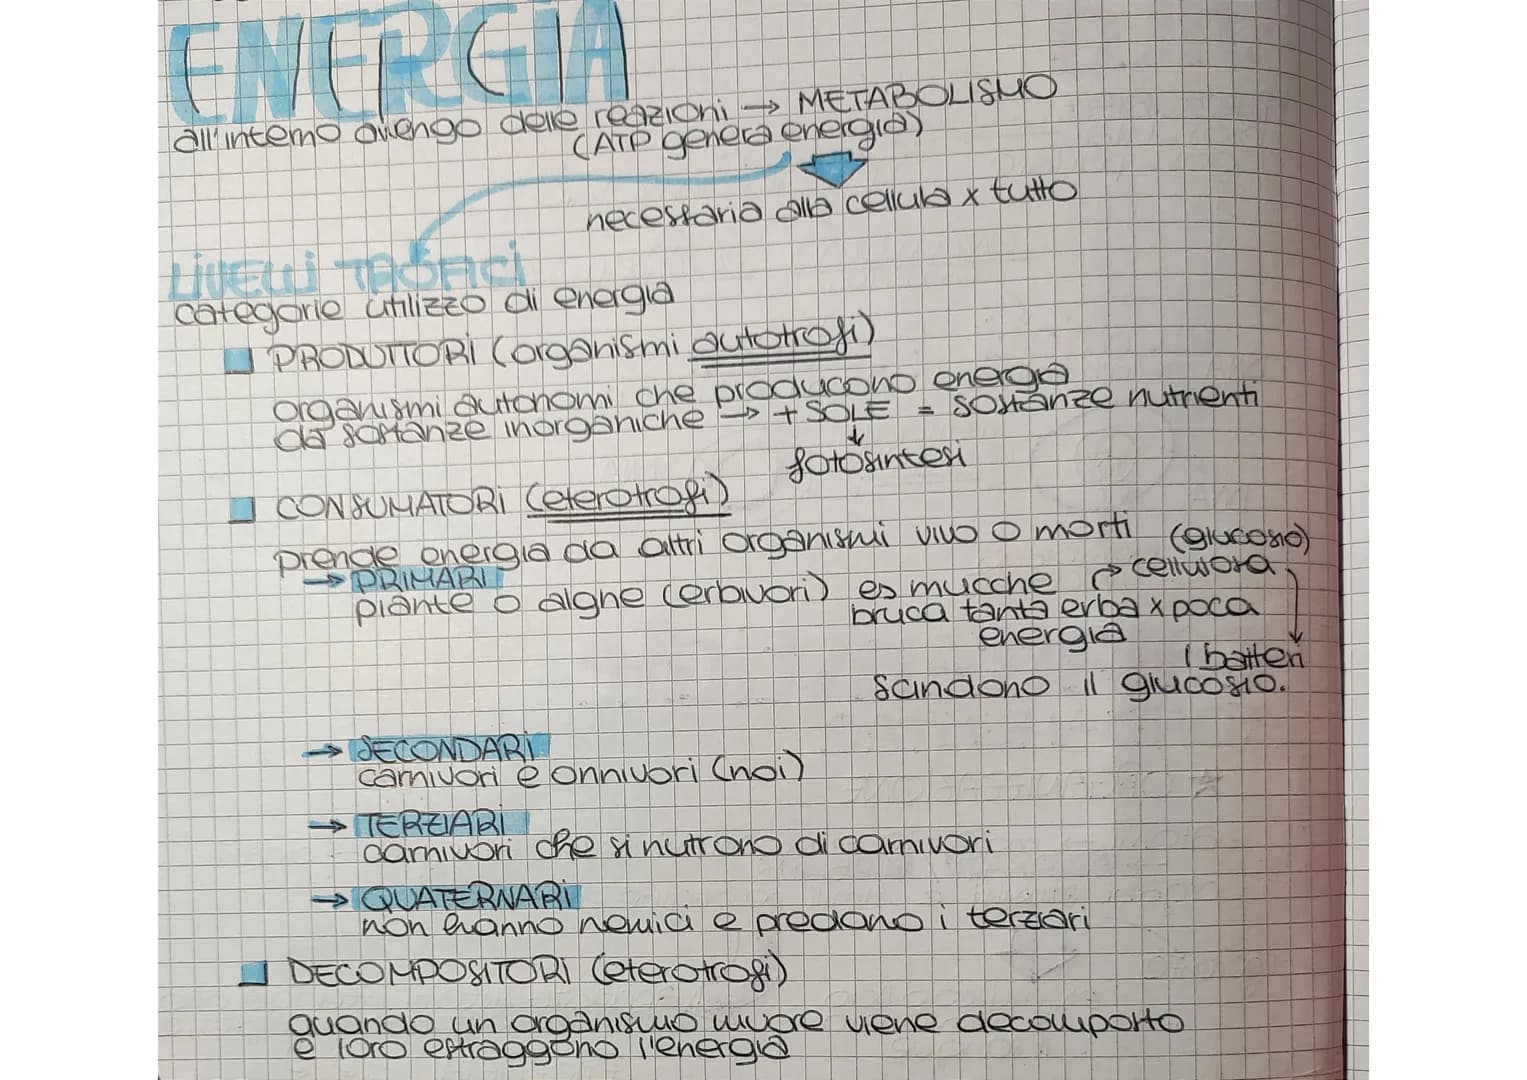 ENERGIA
all'interno avengo delle reazioni → METABOLISMO
(ATP genera energia)
necessaria alla cellula x tutto
LIVELLI TROFICI
categorie utilizzo di energia
PRODUTTORI (organismi autotrofi)
organismi autonomi che producono energia
da sostanze inorganiche → + SOLE = sostanze nutrienti
fotosintesi
CONSUMATORI (eterotrofi)
prende energia da altri organismi vivo o morti (glucosio)
→ PRIMARI → cellulosa
piante o alghe (erbivori) es mucche
bruca tanta erba x poca
energia
i batteri
scindono il glucosio.
→ SECONDARI
carnivori e onnivori (noi)
→ TERZIARI
carnivori che si nutrono di carnivori
→ QUATERNARI
non hanno nemici e predano i terziari
DECOMPOSITORI (eterotrofi)
quando un organismo muore viene decomposto
e loro estraggono l'energia